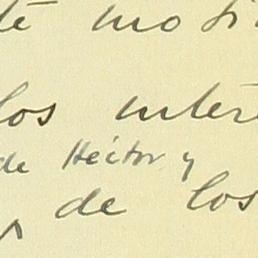 te moti
los inter
de Héctor y
de los